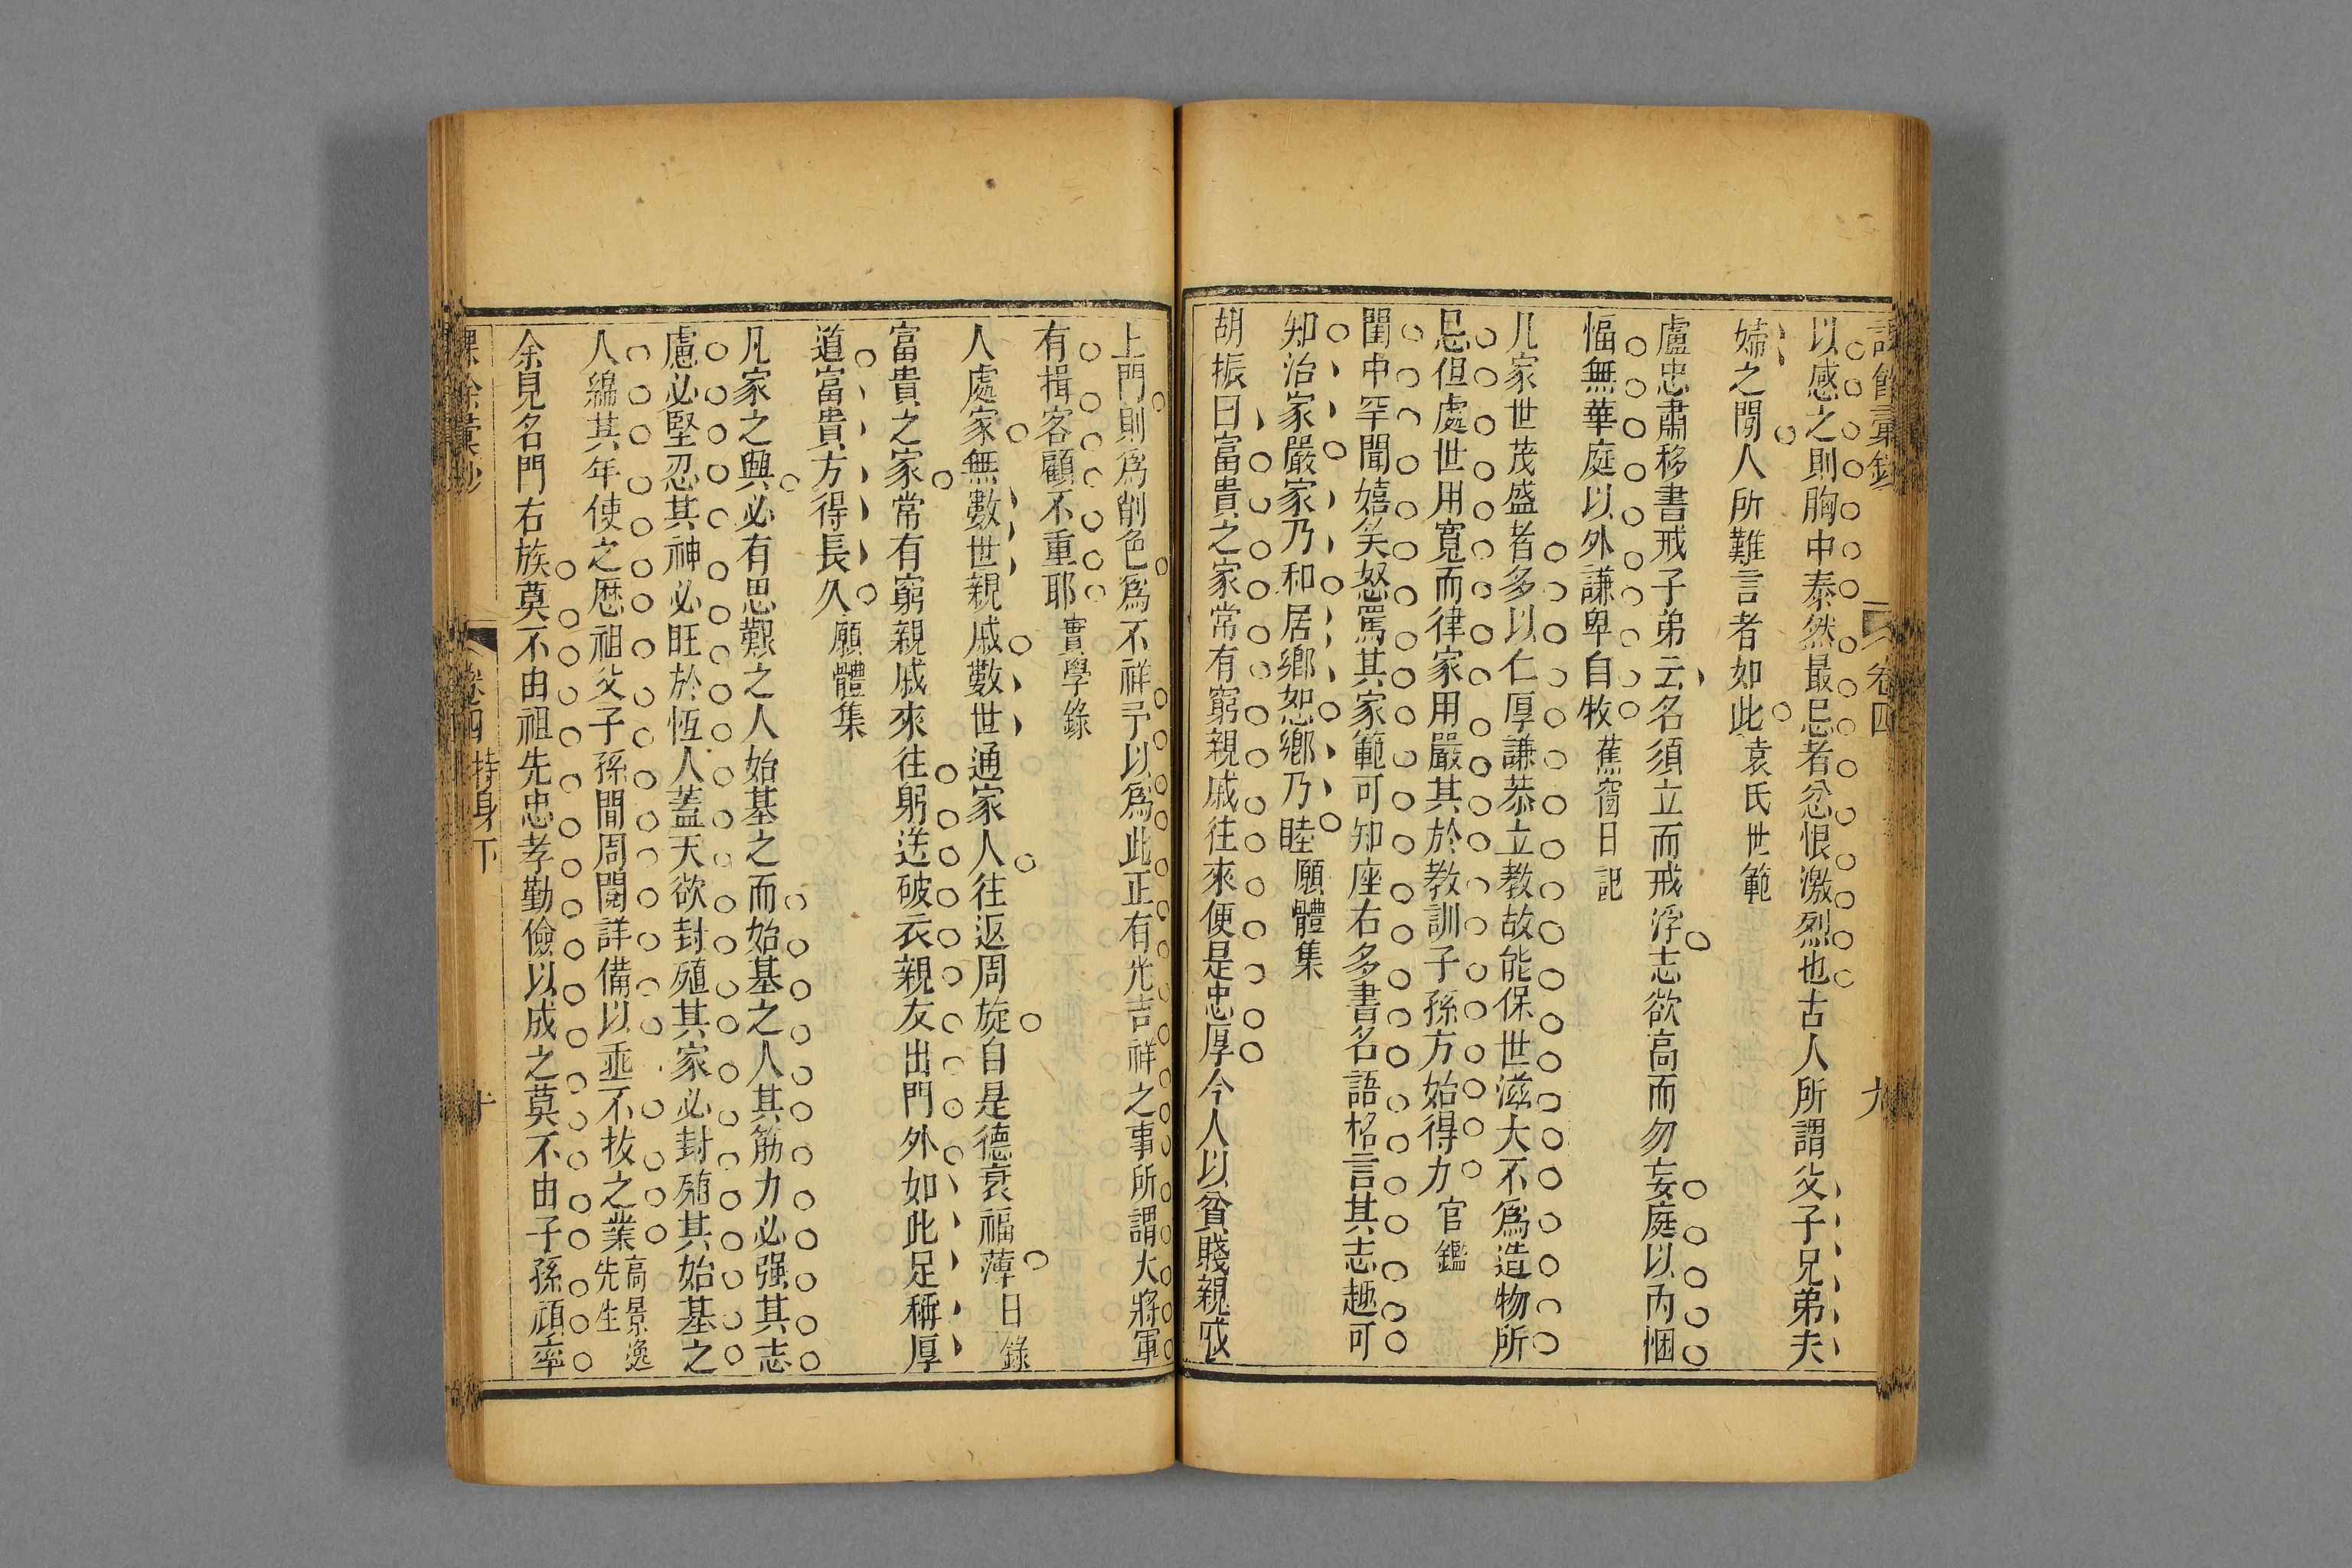 課餘彙鈔
卷四
九
以感之則胸中泰然最忌者忿恨激烈也古人所謂父子兄弟夫
婦之間人所難言者如此袁氏世範
盧忠肅移書戒子弟云名須立而戒浮志欲高而勿妄庭以內悃
愊無華庭以外謙卑自牧蕉窗日記
凡家世茂盛者多以仁厚謙恭立教故能保世滋大不爲造物所
忌但處世用寬而律家用嚴其於教訓子孫方始得力官鑑
閨中罕聞嬉笑怒罵其家範可知座右多書名語格言其志趣可
知治家嚴家乃和居鄉恕鄉乃睦願體集
胡振曰富貴之家常有窮親戚往來便是忠厚今人以貧賤親戚
上門則爲削色爲不祥予以爲此正有光吉祥之事所謂大將軍
有揖客顧不重耶實學錄
人處家無數世親戚數世通家人往返周旋自是德衰福薄日錄
富貴之家常有窮親戚來往躬送破衣親友出門外如此足稱厚
道富貴方得長久願體集
凡家之興必有思艱之人始基之而始基之人其筋力必强其志
慮必堅忍其神必旺於恆人蓋天欲封殖其家必封殖其始基之
人綿其年使之歷祖父子孫間周閱詳備以垂不拔之業高景逸
先生
余見名門右族莫不由祖先忠孝勤儉以成之莫不由子孫頑率
課餘彙鈔
卷四
持身下
十